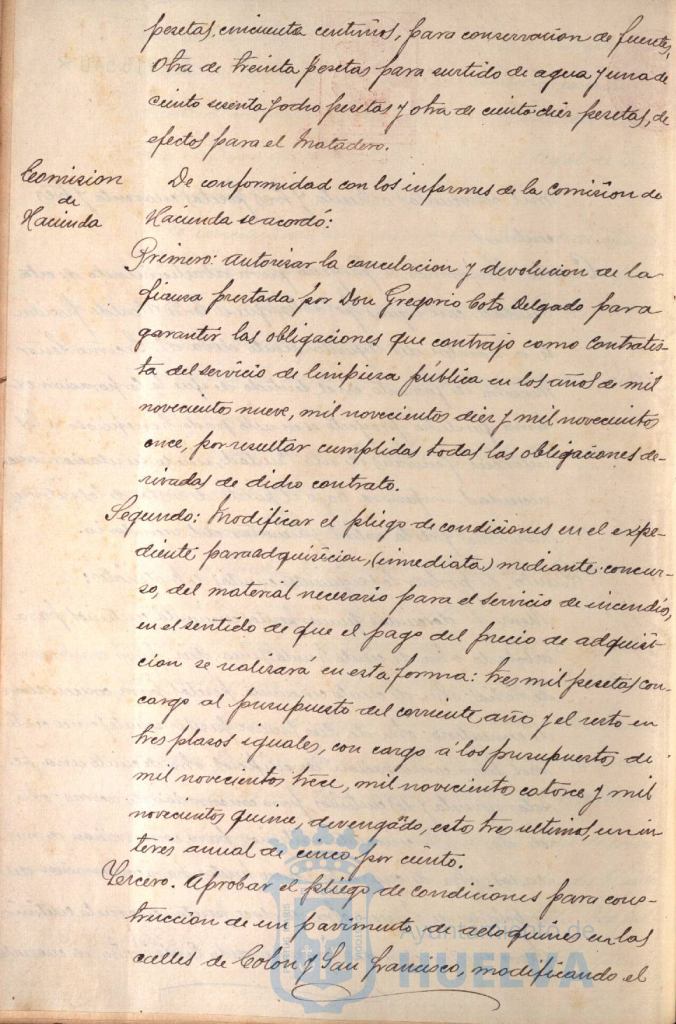 pesetas, cincuenta centimos, para conservacion de fuentes,
Otra de treinta pesetas para surtido de agua y una de
ciento sesenta y ocho pesetas y otra de ciento diez pesetas, de
efectos para el Matadero.
Comision
de
Hacienda
De conformidad con los informes de la Comision de
Hacienda se acordó:
Primero: Autorizar la cancelacion y devolucion de la
fianza prestada por Don Gregorio Coto Delgado para
garantir las obligaciones que contrajo como Contratis-
ta del servicio de limpieza pública en los años de mil
novecientos nueve, mil novecientos diez y mil novecientos
once, por resultar cumplidas todas las obligaciones de-
rivadas de dicho contrato.
Segundo: Modificar el pliego de condiciones en el expe-
diente para adquisicion, (inmediata) mediante concur-
so, del material necesario para el servicio de incendio,
en el sentido de que el pago del precio de adquisi-
cion se realizará en esta forma: tres mil pesetas con
cargo al presupuesto del corriente año y el resto en
tres plazos iguales, con cargo á los presupuestos de
mil novecientos trece, mil novecientos catorce y mil
novecientos quince, devengando, estos tres ultimos, un in-
terés anual de cinco por ciento.
Tercero. Aprobar el pliego de condiciones para cons-
truccion de un pavimento de adoquines en las
calles de Colón y San Francisco, modificando el
Ayuntamiento de
HUELVA